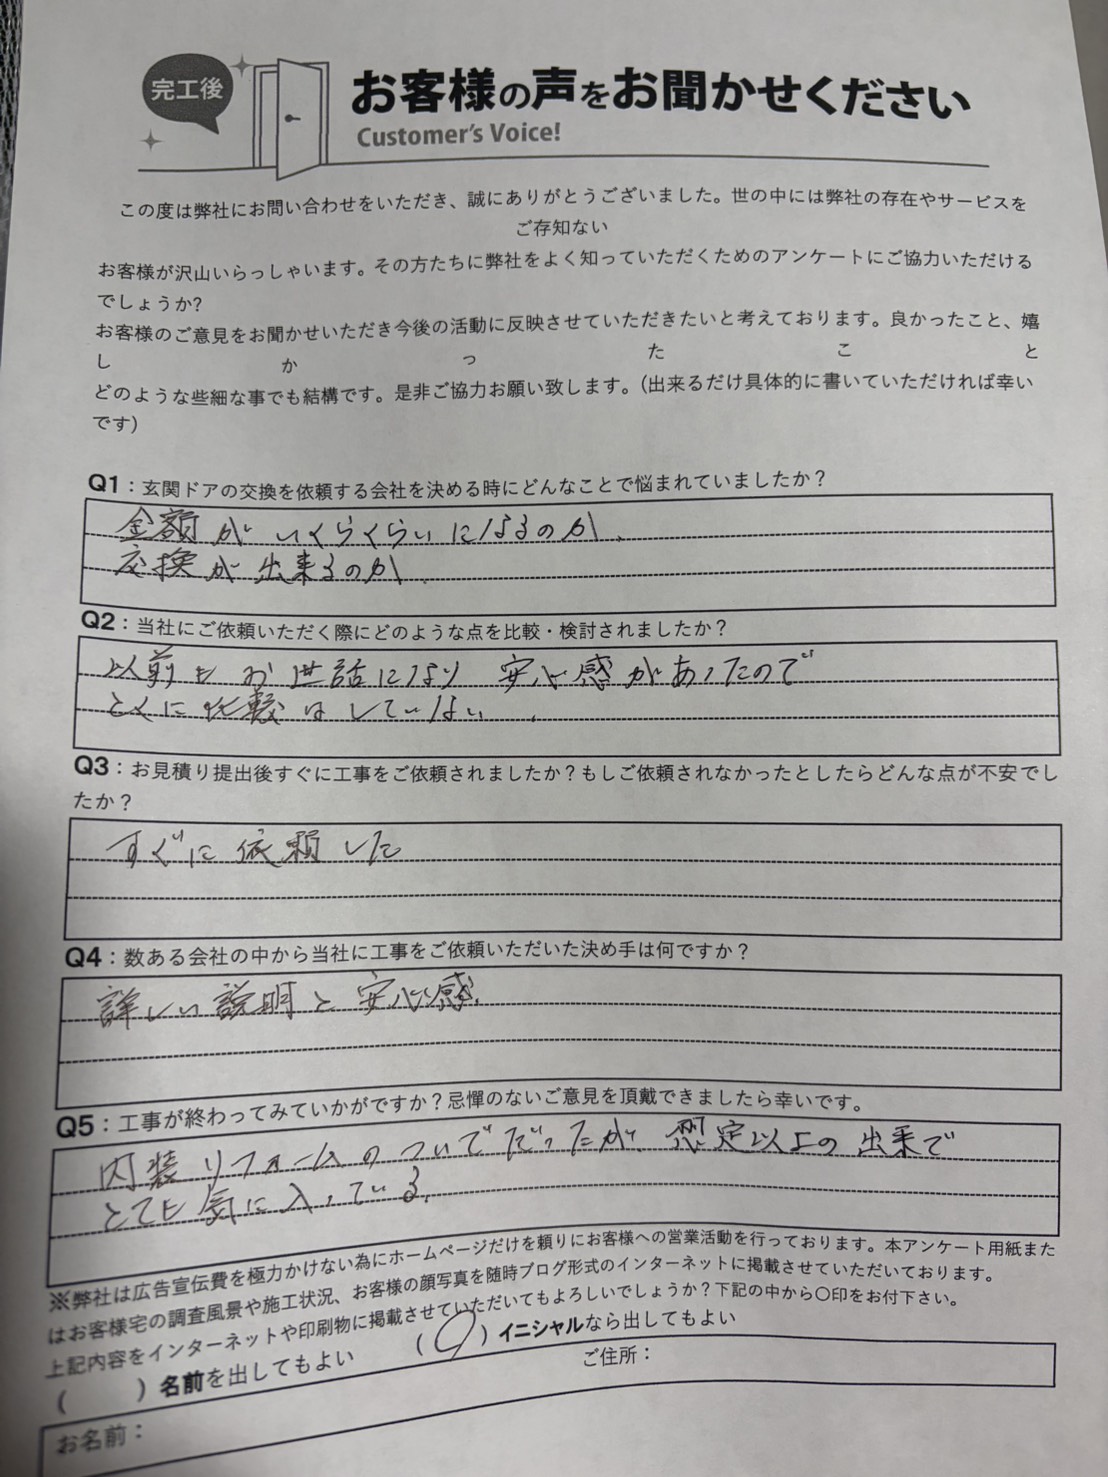 完工後
お客様の声をお聞かせください
Customer's Voice!
この度は弊社にお問い合わせをいただき、誠にありがとうございました。世の中には弊社の存在やサービスを
ご存知ない
お客様が沢山いらっしゃいます。その方たちに弊社をよく知っていただくためのアンケートにご協力いただける
でしょうか?
お客様のご意見をお聞かせいただき今後の活動に反映させていただきたいと考えております。良かったこと、嬉
しかったこと
どのような些細な事でも結構です。是非ご協力お願い致します。(出来るだけ具体的に書いていただければ幸い
です)
Q1：玄関ドアの交換を依頼する会社を決める時にどんなことで悩まれていましたか？
金額がいくらくらいになるのか、
交換が出来るのか
Q2：当社にご依頼いただく際にどのような点を比較・検討されましたか？
以前もお世話になり 安心感があったので
とくに比較はしていない。
Q3：お見積り提出後すぐに工事をご依頼されましたか？もしご依頼されなかったとしたらどんな点が不安でし
たか？
すぐに依頼した
Q4：数ある会社の中から当社に工事をご依頼いただいた決め手は何ですか？
詳しい説明と安心感。
Q5：工事が終わってみていかがですか？忌憚のないご意見を頂戴できましたら幸いです。
内装リフォームのついでだったが、想定以上の出来で
とても気に入っている。
※弊社は広告宣伝費を極力かけない為にホームページだけを頼りにお客様への営業活動を行っております。本アンケート用紙また
はお客様宅の調査風景や施工状況、お客様の顔写真を随時ブログ形式のインターネットに掲載させていただいております。
上記内容をインターネットや印刷物に掲載させていただいてもよろしいでしょうか？下記の中から〇印をお付下さい。
(　　) 名前を出してもよい　(〇) イニシャルなら出してもよい
お名前：　ご住所：